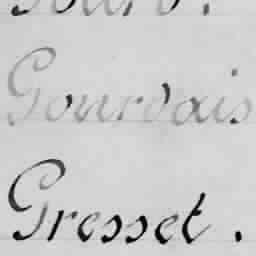 Gourdais
Gresset.